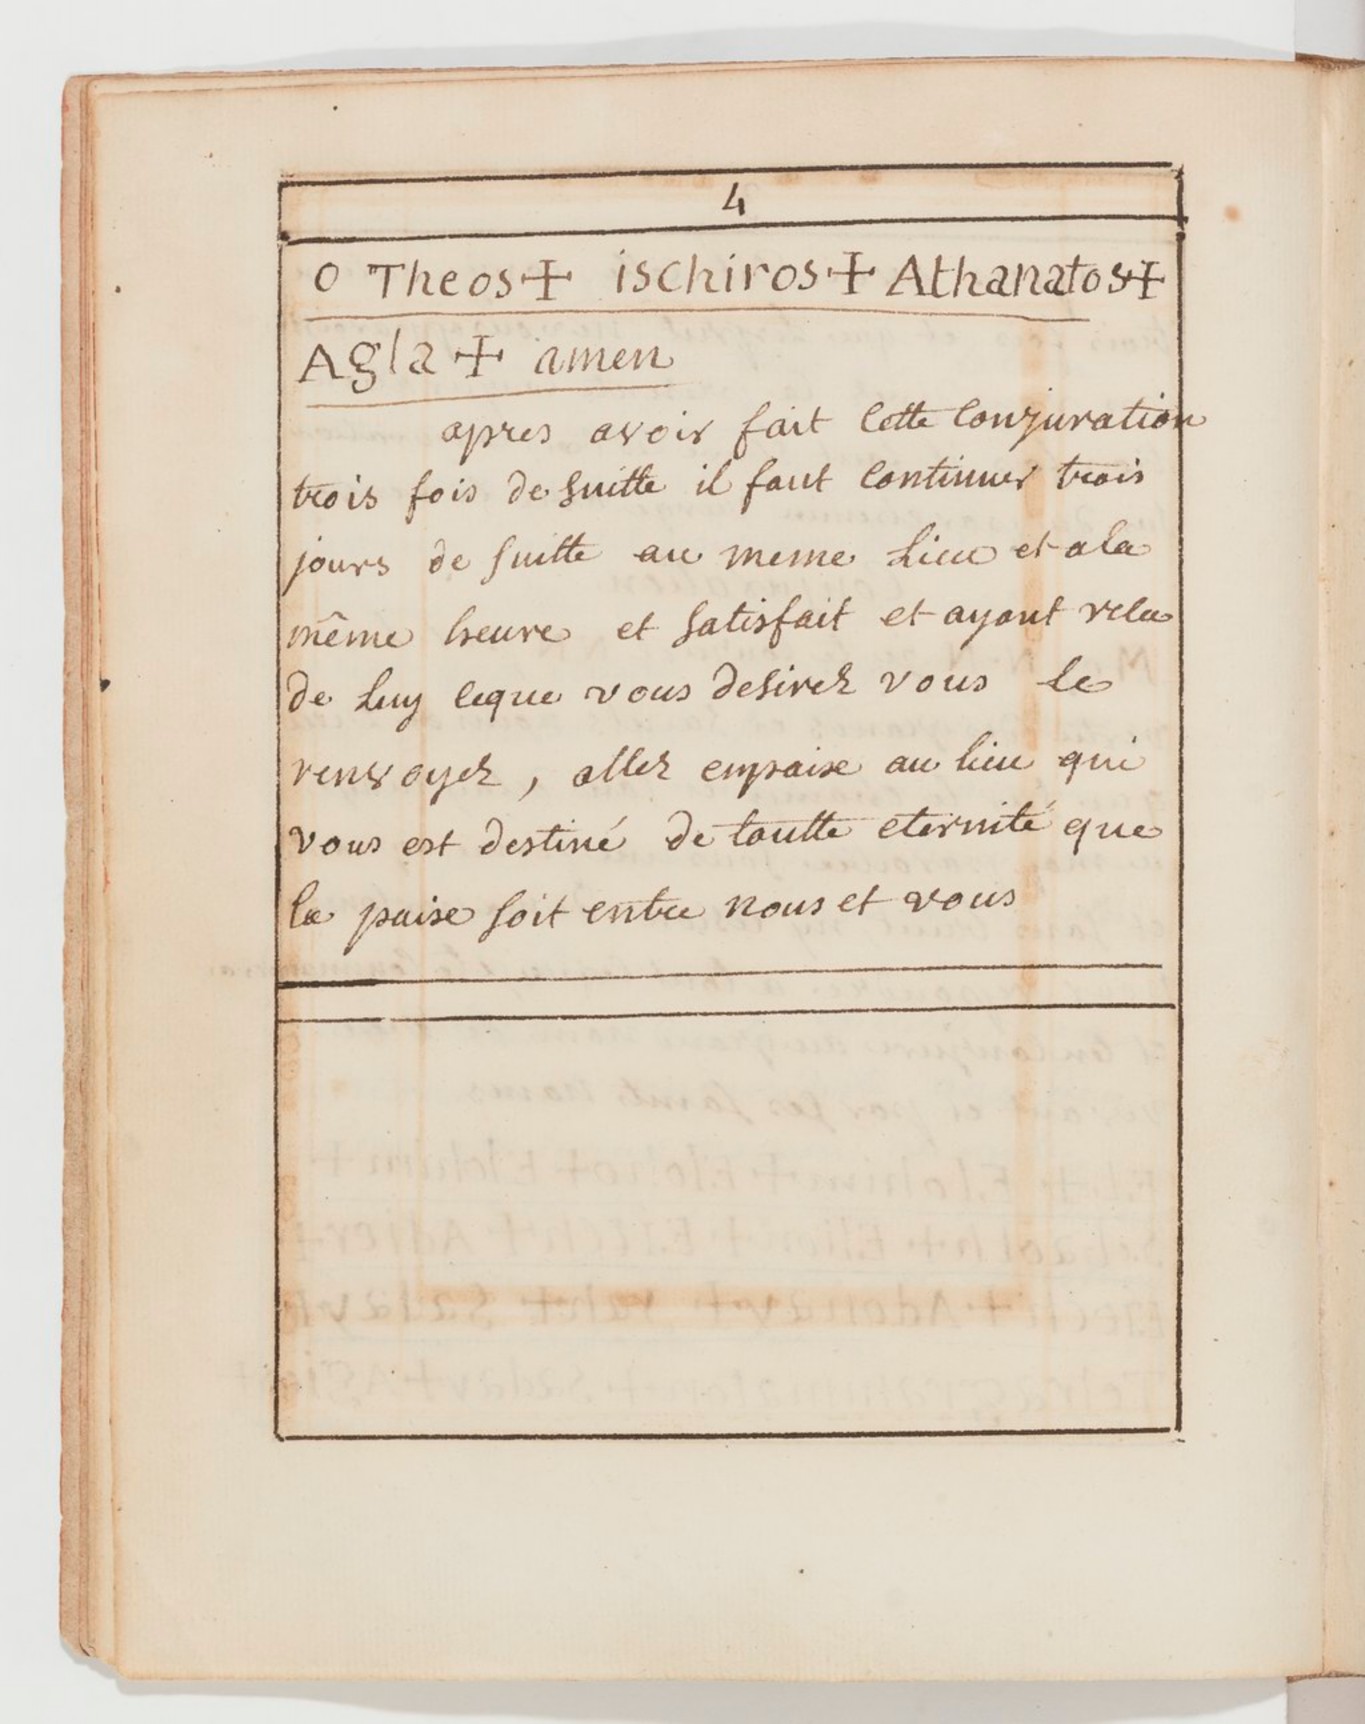 4
O Theos + ischiros + Athanatos +
Agla + amen
apres avoir fait cette conjuration
trois fois de suitte il faut continuer trois
jours de suitte au meme lieu et ala
même heure et satisfait et ayant
de luy ceque vous desirez vous le
renvoyez, allez enpaixe au lieu qui
vous est destiné de toutte eternité que
la paixe soit entre nous et vous